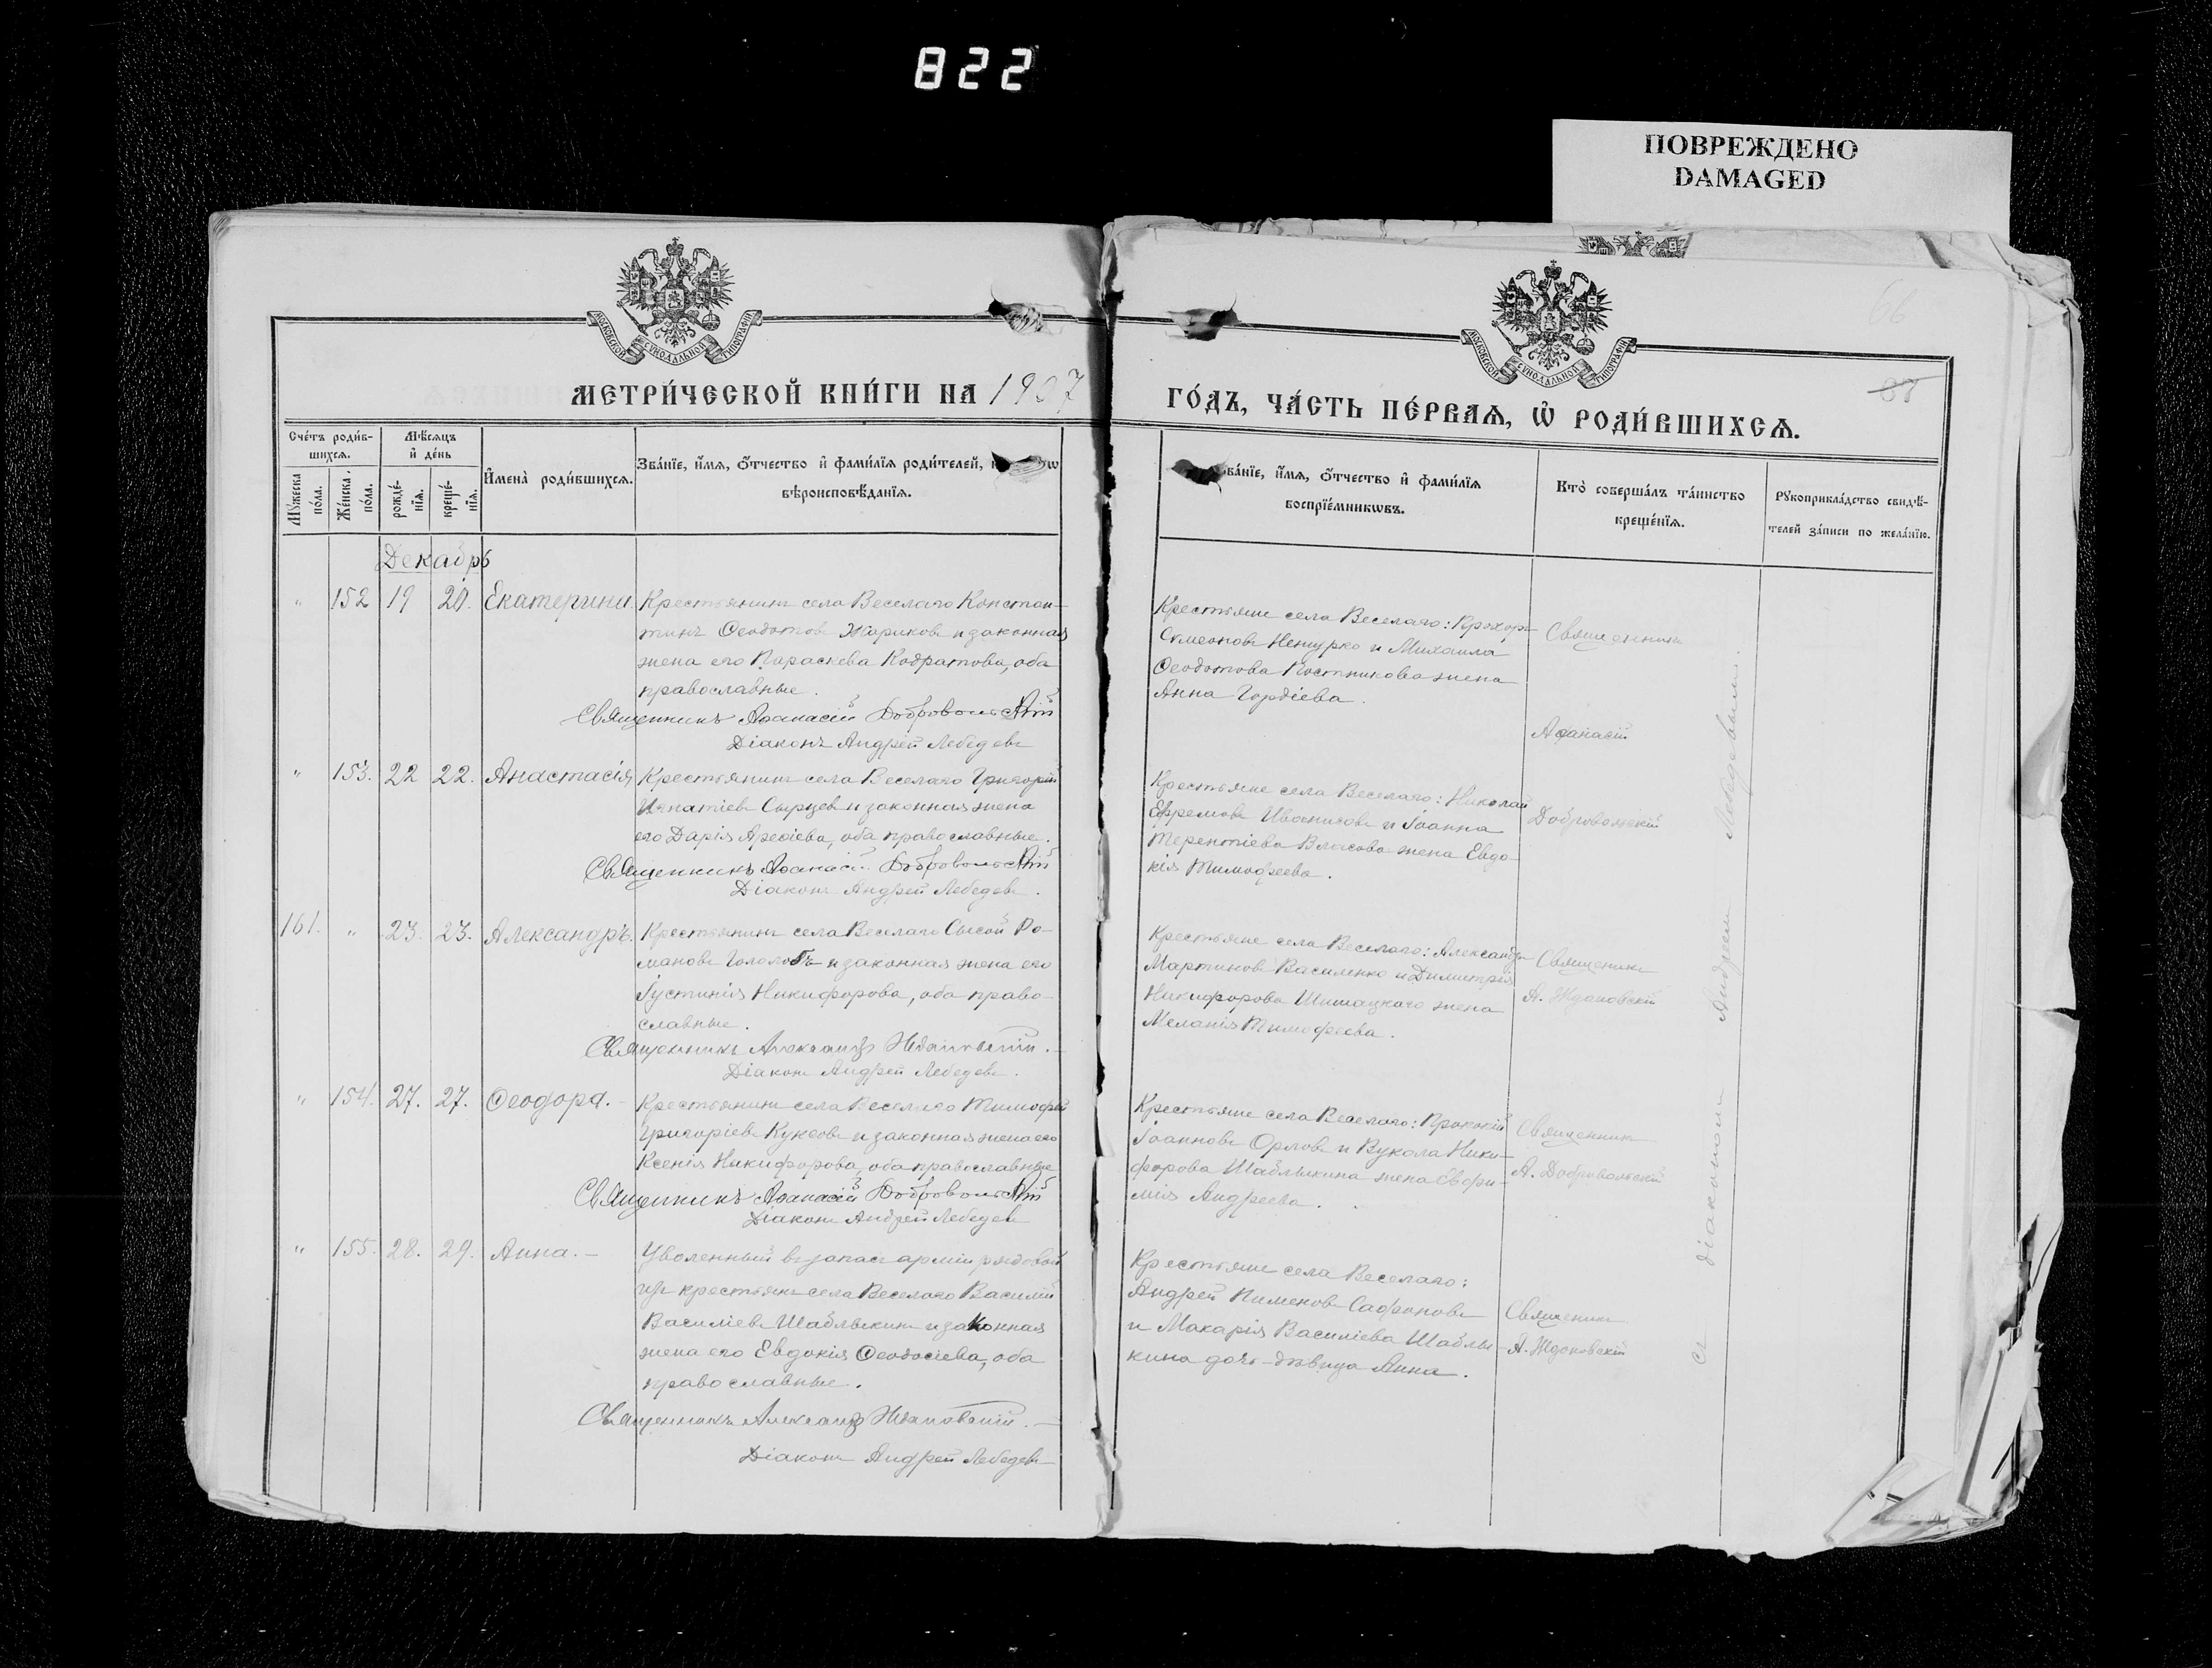 822
ПОВРЕЖДЕНО
DAMAGED
МОСКОВСКОЙ СѴНОДАЛЬНОЙ ТИПОГРАФІИ
МОСКОВСКОЙ СѴНОДАЛЬНОЙ ТИПОГРАФІИ
66
МЕТРИ́ЧЕСКОЙ КНИ́ГИ НА 1907
ГО́ДЪ, ЧА́СТЬ ПЕ́РВАѦ, Ѡ҆ РОДИ́ВШИХСѦ.
Сче́тъ роди́в-
шихсѧ.
Мѣ́сѧцъ
и҆ де́нь
Мꙋ́жеска
по́ла.
Же́нска.
по́ла.
рожде́-
нїѧ.
креще́-
нїѧ.
И҆мена̀ роди́вшихсѧ.
Зва́нїе, и҆́мѧ, ѻ҆́тчество и҆ фами́лїѧ роди́телей,
вѣроисповѣ́данїѧ.
ва́нїе, и҆́мѧ, ѻ҆́тчество и҆ фами́лїѧ
воспрїе́мникѡвъ.
Кто̀ соверша́лъ та́инство
креще́нїѧ.
Рꙋкоприкла́дство свидѣ́-
телей за́писи по жела́нїю.
Декабрь
" 152 19 20. Екатерина. Крестьянинъ села Веселаго Констан-
тинъ Ѳеодотовъ Жариковъ и законная
жена его Параскева Кодратова, оба
православные.
Священникъ Аѳанасій Добровольскій
Діаконъ Андрей Лебедевъ
Крестьяне села Веселаго: Прохоръ
Сѵмеоновъ Нешурко и Михаила
Ѳеодотова Постникова жена
Анна Гордіева.
Священникъ
Аѳанасій
Добровольскій
" 153. 22 22. Анастасія, Крестьянинъ села Веселаго Григорій
Игнатіевъ Сырцевъ и законная жена
его Дарія Ареѳіева, оба православные.
Священникъ Аѳанасій Добровольскій
Діаконъ Андрей Лебедевъ.
Крестьяне села Веселаго: Николай
Ефремовъ Иванисовъ и Іоанна
Терентіева Власова жена Евдо-
кія Тимофеева.
161. " 23. 23. Александръ. Крестьянинъ села Веселаго Сысой Ро-
мановъ Гололобъ и законная жена его
Іустинія Никифорова, оба право-
славные.
Священникъ Александръ Ждановскій.
Діаконъ Андрей Лебедевъ.
Крестьяне села Веселаго: Александръ
Мартиновъ Василенко и Димитрія
Никифорова Шишацкаго жена
Меланія Тимофеева.
Священникъ
А. Ждановскій
" 154. 27. 27. Ѳеодора. Крестьянинъ села Веселаго Тимофей
Григоріевъ Куксовъ и законная жена его
Ксенія Никифорова, оба православные
Священникъ Аѳанасій Добровольскій
Діаконъ Андрей Лебедевъ
Крестьяне села Веселаго: Прокопій
Іоанновъ Орловъ и Вукола Ники-
форова Шаблыкина жена Евфи-
мія Андреева.
Священникъ
А. Добровольскій
" 155. 28. 29. Анна. Уволенный въ запасъ арміи рядовой
изъ крестьянъ села Веселаго Василій
Василіевъ Шаблыкинъ и законная
жена его Евдокія Ѳеодосіева, оба
православные.
Священникъ Александръ Ждановскій.
Діаконъ Андрей Лебедевъ
Крестьяне села Веселаго:
Андрей Пименовъ Сафоновъ
и Макарія Василіева Шаблы-
кина дочь-дѣвица Анна.
Священникъ
А. Ждановскій
съ діакономъ Андреемъ Лебедевымъ.